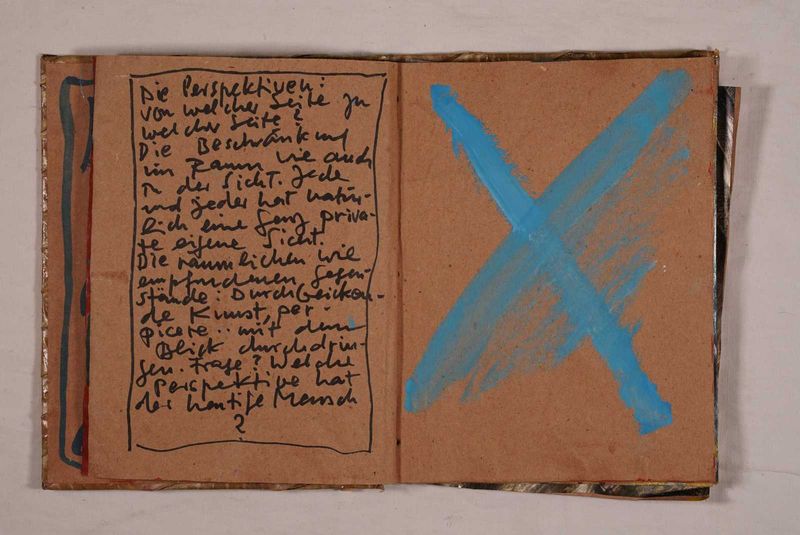 Die Perspektiven:
von welcher Seite zu
welcher Seite?
Die Beschränkung
im Raum wie auch
in der Sicht. Jede
und jeder hat natür-
lich eine ganz priva-
te eigene Sicht.
Die räumlichen wie
empfundenen Gegen-
stände: Durchblicken-
de Kunst, per-
picere: mit dem
Blick durchdrin-
gen. Frage? Welche
Perspektive hat
der heutige Mensch
?